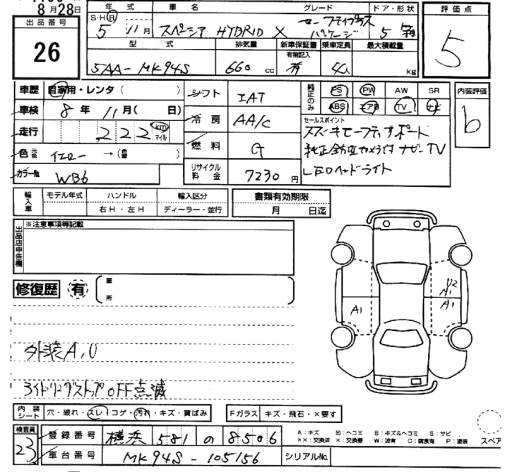 8月28日
出品番号
26
年式
S・H・R
5年11月
車名
スペーシア HYBRID X
グレード
セーフティプラス
パッケージ
ドア・形状
5
評価点
5
型式
5AA-MK94S
排気量
660 cc
新車保証書
有無記入
有
乗車定員
4人
最大積載量
kg
車歴
自家用・レンタ( )
シフト
IAT
純正のみ
PS PW AW SR
ABS エアB TV ナビ
内装評価
b
車検
8年11月( 日)
冷房
AA/C
セールスポイント
スズキセーフティサポート
走行
222
km
マイル
燃料
G
純正全方位カメラ付ナビ TV
色
元色
イエロー →(替 )
LEDヘッドライト
カラーNo.
WB6
リサイクル料金
7230円
輸入車
モデル年式
ハンドル
右H・左H
輸入区分
ディーラー・並行
書類有効期限
月 日迄
出品店申告欄
※注意事項等記載
修復歴
有
箇所
A1
U2
A1
外装A,U
アイドリングストップOFF点滅
内装シート
穴・破れ・スレ・コゲ・汚れ・キズ・質ばみ
Fガラス
キズ・飛石・×要す
検査員
23
登録番号
横浜 581 の 8506
車台番号
MK94S-105156
シリアルNo.
A:キズ U:ヘコミ B:キズ&ヘコミ S:サビ
××:交換済 ×:要交換 W:波有 C:腐食有 P:塗装
スペア